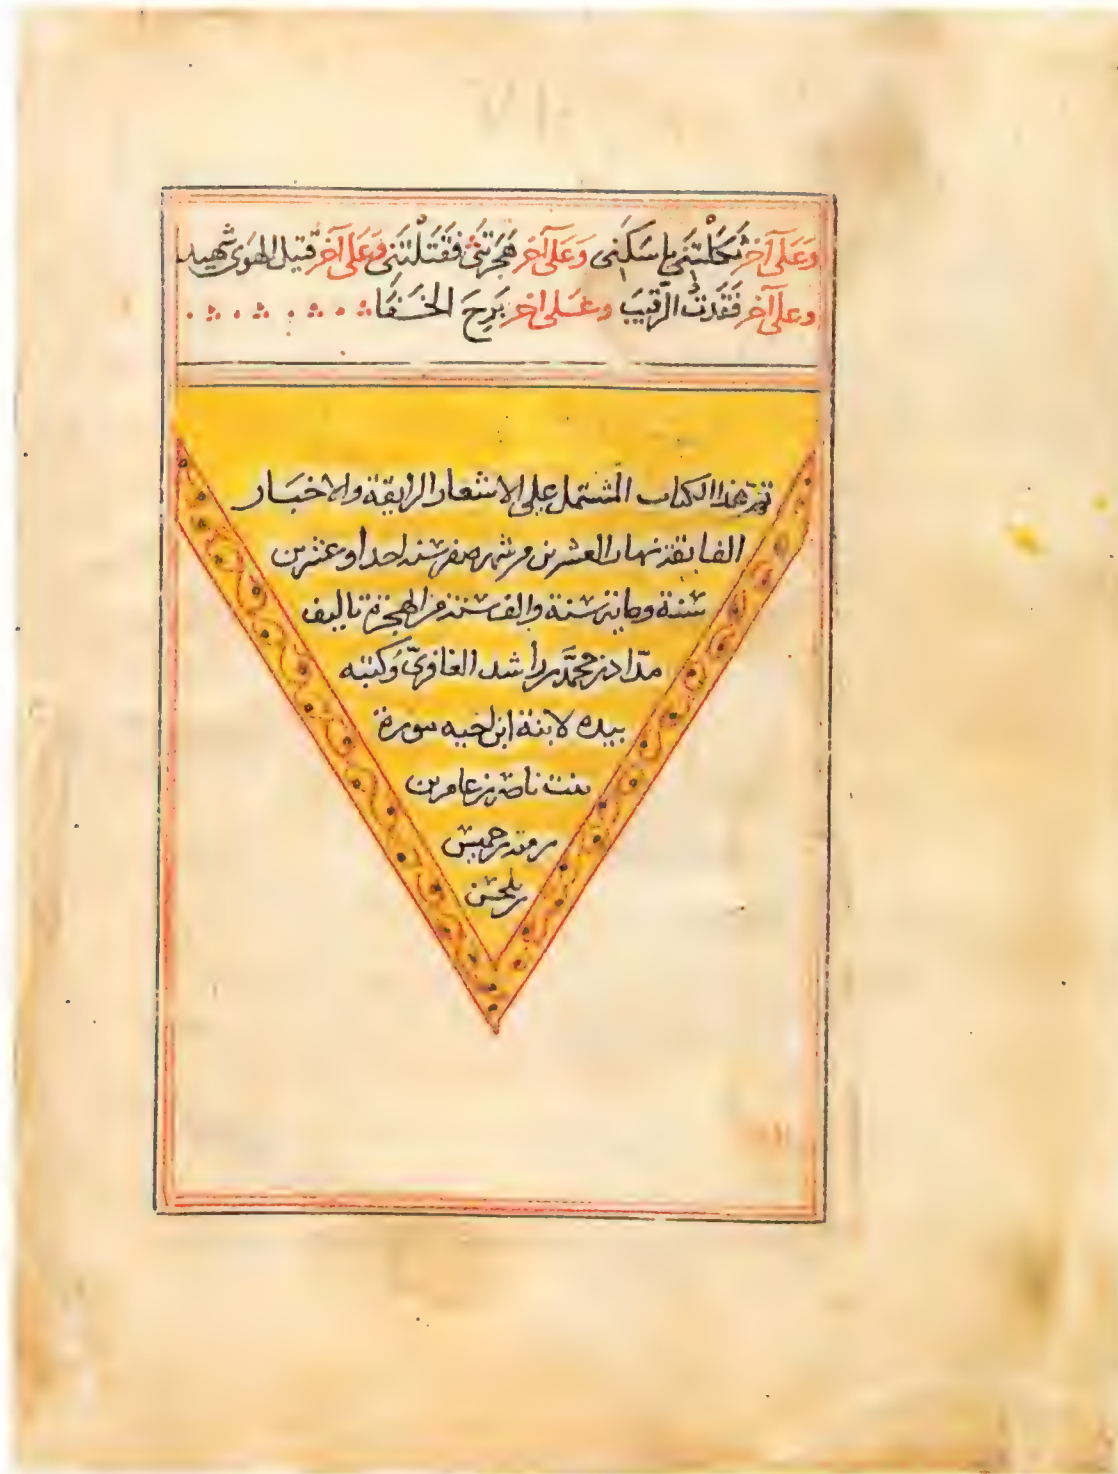 وَعَلَى آخَر ثَكَلْتَنِي يا سَكَنِي وَعَلَى آخر هَجَرْتَنِي فَقَتَلْتَنِي وَعَلَى آخر قتيل الهَوَى شهيد
وعلى آخر فَقَدتُ الرَّقِيبَ وعَلى اخر بَرِحَ الخَفَا
تمّ هذا الكتاب المشتمل على الاشعار الرايقة والاخبار
الفايقة نهار العشرين من شهر صفر سنة احدا وعشرين
سنة ومائة سنة والف سنة من الهجرة تاليف
مدّاد بن محمَّد بن راشد الغافريّ وكتبه
بيده لابنة ابن اخيه سورة
بنت ناصر بن عامر بن
رمثه بن خميس
بلحسن